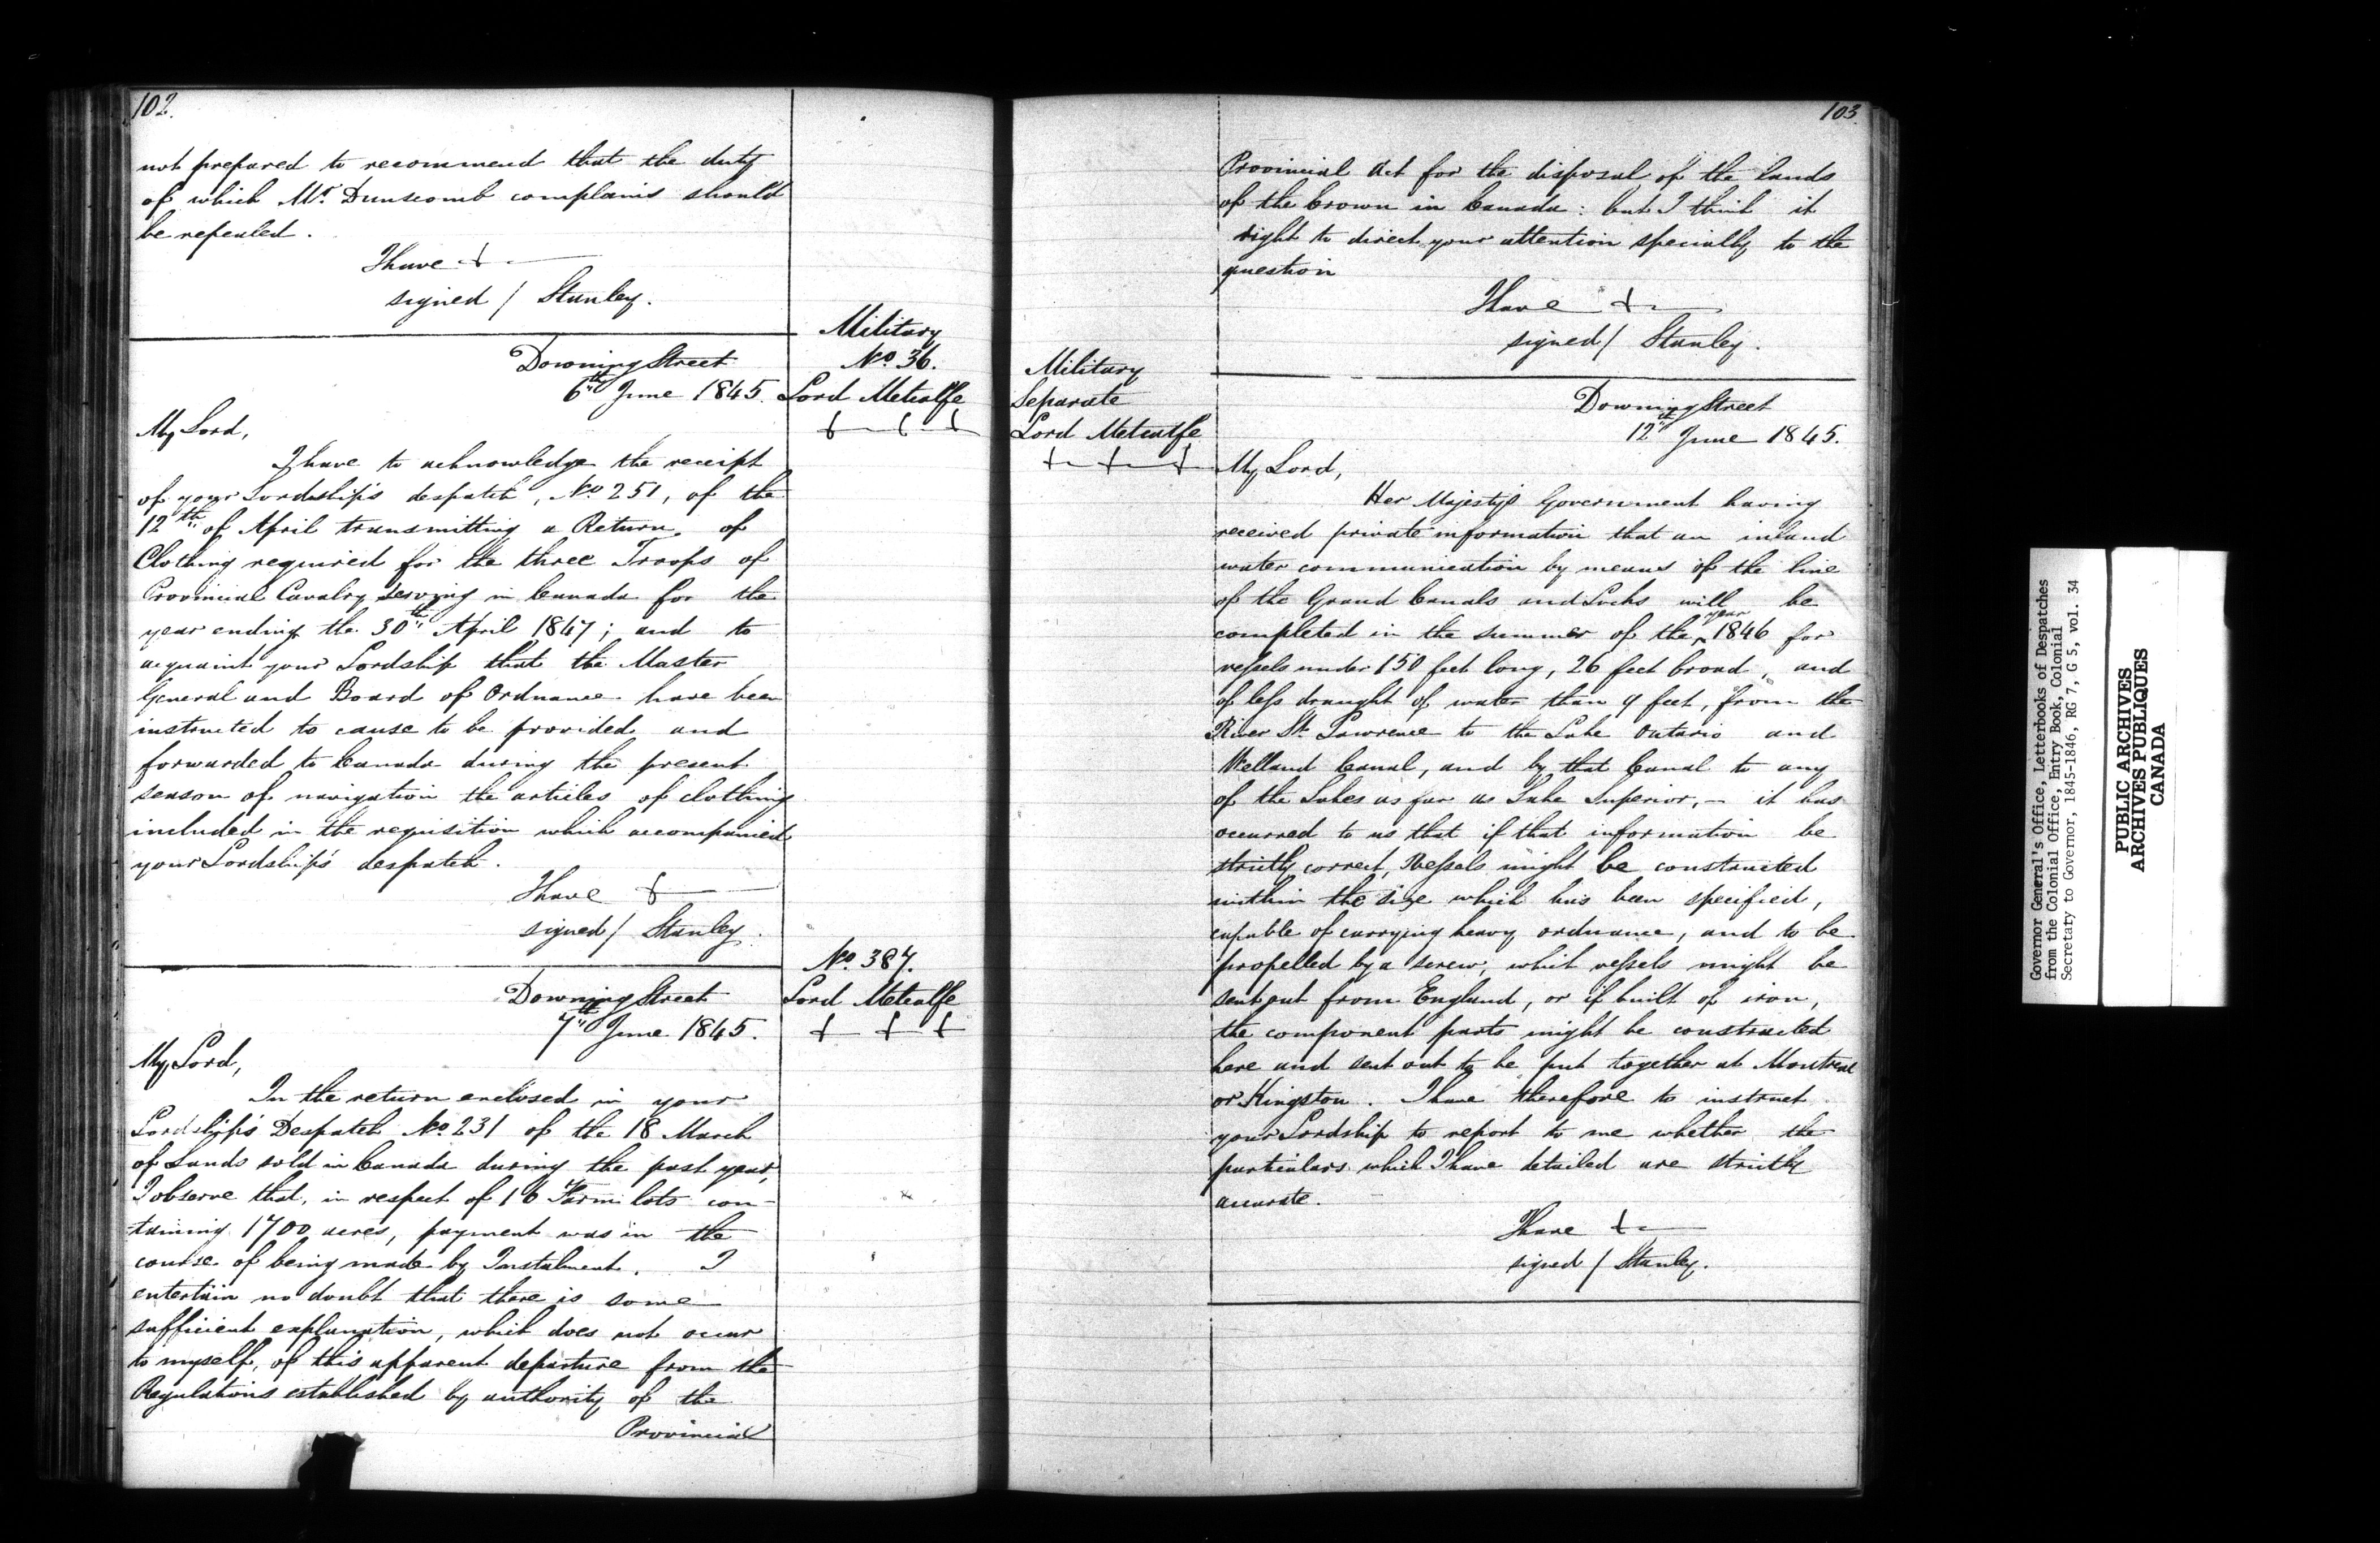 102.
not prepared to recommend that the duty
of which Mr. Dunscomb complains should
be repealed.
I have &c
signed / Stanley.
Military
No. 36.
Lord Metcalfe
&c &c &c
Downing Street
6th June 1845.
My Lord,
I have to acknowledge the receipt
of your Lordship's despatch, No. 251, of the
12th of April transmitting a Return of
Clothing required for the three Troops of
Provincial Cavalry serving in Canada for the
year ending the 30th April 1847; and to
acquaint your Lordship that the Master
General and Board of Ordnance have been
instructed to cause to be provided and
forwarded to Canada during the present
season of navigation the articles of clothing
included in the requisition which accompanied
your Lordship's despatch.
I have &c
signed / Stanley.
No. 387.
Lord Metcalfe
&c &c &c
Downing Street
7th June 1845.
My Lord,
In the return enclosed in your
Lordship's Despatch No. 231 of the 18 March
of Lands sold in Canada during the past year,
I observe that, in respect of 16 Farm lots con-
-taining 1700 acres, payment was in the
course of being made by Instalment. I
entertain no doubt that there is some
sufficient explanation, which does not occur
to myself, of this apparent departure from the
Regulations established by authority of the
Provincial
103.
Provincial Act for the disposal of the lands
of the Crown in Canada: but I think it
right to direct your attention specially to the
question
I have &c
signed / Stanley.
Military
Separate
Lord Metcalfe
&c &c &c
Downing Street
12th June 1845.
My Lord,
Her Majesty's Government having
received private information that an inland
water communication by means of the line
of the Grand Canals and Locks will be
completed in the summer of the year 1846 for
vessels under 150 feet long, 26 feet broad, and
of less draught of water than 9 feet, from the
River St. Lawrence to the Lake Ontario and
Welland Canal, and by that Canal to any
of the Lakes as far as Lake Superior, - it has
occurred to us that if that information be
strictly correct, Vessels might be constructed
within the size which has been specified,
capable of carrying heavy ordnance, and to be
propelled by a screw, which vessels might be
sent out from England, or if built of iron,
the component parts might be constructed
here and sent out to be put together at Montreal
or Kingston. I have therefore to instruct
your Lordship to report to me whether the
particulars which I have detailed are strictly
accurate.
I have &c
signed / Stanley.
Governor General's Office, Letterbooks of Despatches
from the Colonial Office, Entry Book, Colonial
Secretary to Governor, 1845-1846, RG 7, G 5, vol. 34
PUBLIC ARCHIVES
ARCHIVES PUBLIQUES
CANADA